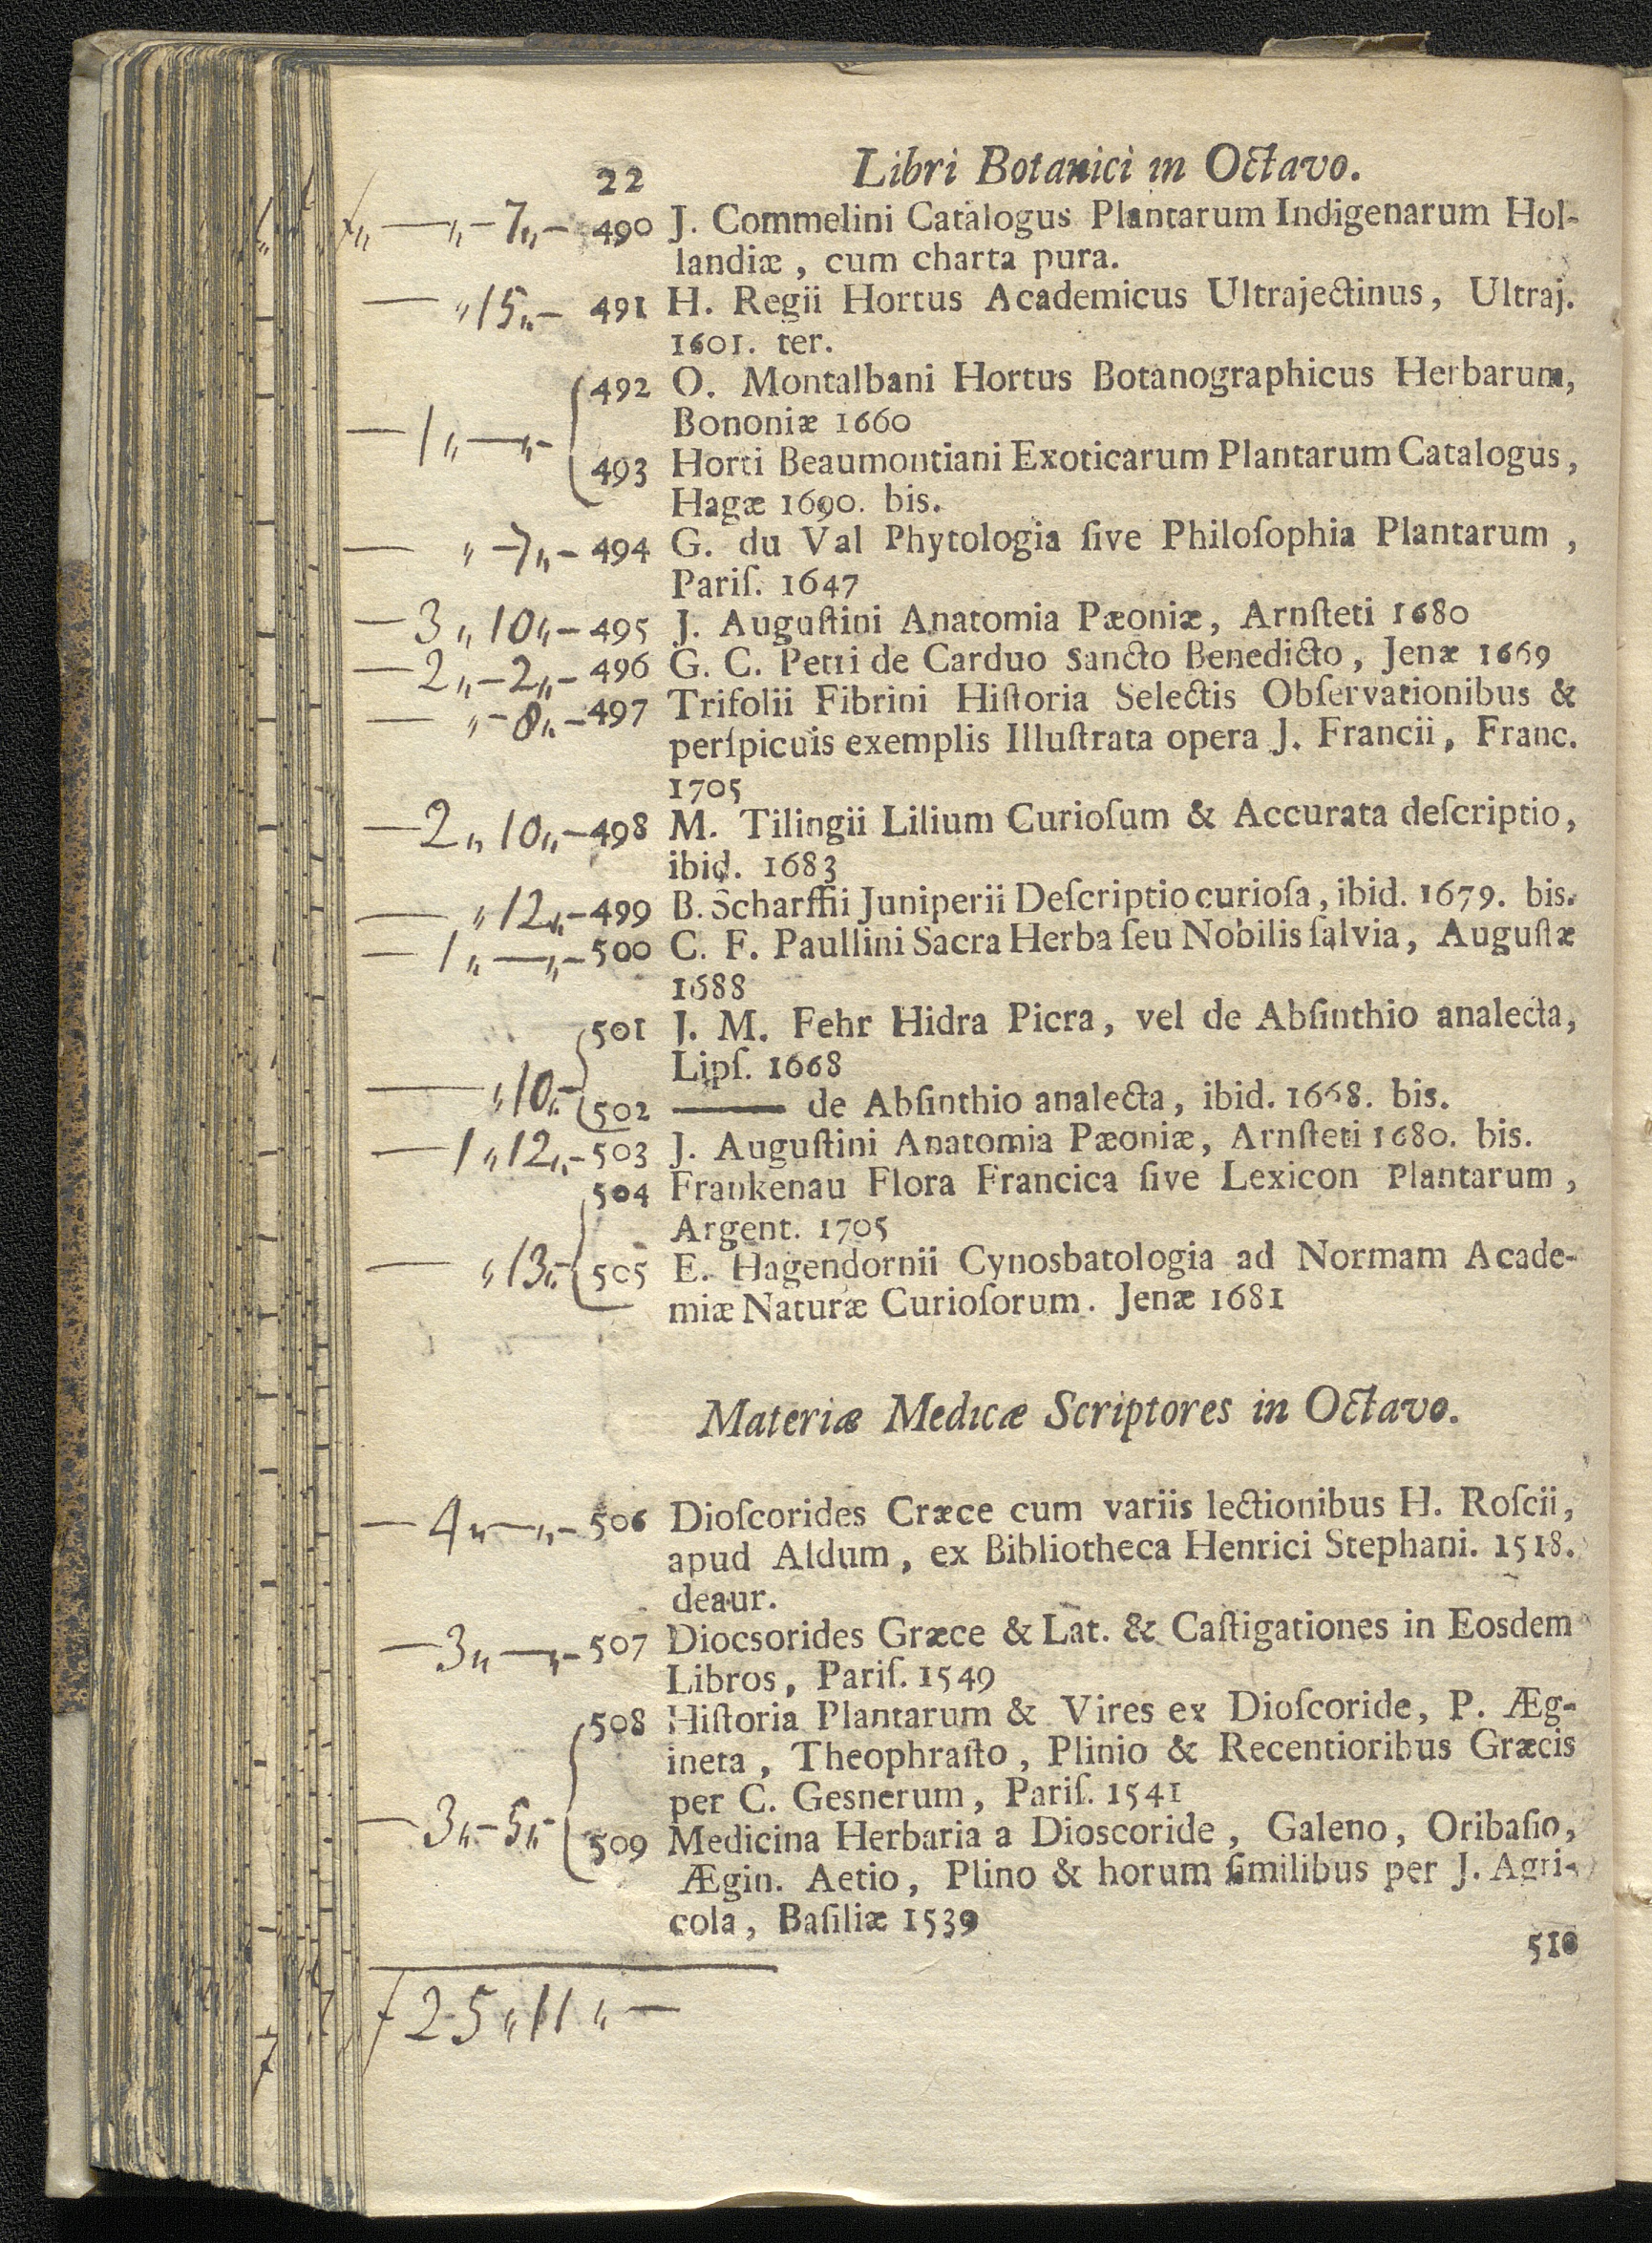 22 Libri Botanici in Octavo.
ƒ„ — „ – 7„ – 490 J. Commelini Catalogus Plantarum Indigenarum Hol-
landiæ , cum charta pura.
— „ 15„ – 491 H. Regii Hortus Academicus Ultrajectinus, Ultraj.
1601. ter.
492 O. Montalbani Hortus Botanographicus Herbarum,
Bononiæ 1660
— 1„ — „ –
493 Horti Beaumontiani Exoticarum Plantarum Catalogus,
Hagæ 1690. bis.
— „ – 7„ – 494 G. du Val Phytologia ſive Philoſophia Plantarum ,
Pariſ. 1647
— 3„ 10„ – 495 J. Auguſtini Anatomia Pæoniæ, Arnſteti 1680
— 2„ – 2„ – 496 G. C. Petri de Carduo Sancto Benedicto, Jenæ 1669
— „ – 8„ – 497 Trifolii Fibrini Hiſtoria Selectis Obſervationibus &
perſpicuis exemplis Illuſtrata opera J. Francii, Franc.
1705
— 2„ 10„ – 498 M. Tilingii Lilium Curioſum & Accurata deſcriptio,
ibid. 1683
— „ 12„ – 499 B. Scharffii Juniperii Deſcriptio curioſa, ibid. 1679. bis.
— 1„ — „ – 500 C. F. Paullini Sacra Herba ſeu Nobilis ſalvia, Auguſtæ
1688
501 J. M. Fehr Hidra Picra, vel de Abſinthio analecta,
Lipſ. 1668
— „ 10„ – 502 —— de Abſinthio analecta, ibid. 1668. bis.
— 1„ 12„ – 503 J. Auguſtini Anatomia Pæoniæ, Arnſteti 1680. bis.
504 Frankenau Flora Francica ſive Lexicon Plantarum ,
Argent. 1705
— „ 13„ – 505 E. Hagendornii Cynosbatologia ad Normam Acade-
miæ Naturæ Curioſorum. Jenæ 1681
Materiæ Medicæ Scriptores in Octavo.
— 4„ — „ – 506 Dioſcorides Cræce cum variis lectionibus H. Roſcii,
apud Aldum, ex Bibliotheca Henrici Stephani. 1518.
deaur.
— 3„ — „ – 507 Diocsorides Græce & Lat. & Caſtigationes in Eosdem
Libros, Pariſ. 1549
508 Hiſtoria Plantarum & Vires ex Dioſcoride, P. Æg-
ineta, Theophraſto, Plinio & Recentioribus Græcis
per C. Gesnerum, Pariſ. 1541
— 3„ – 5„ – 509 Medicina Herbaria a Dioscoride, Galeno, Oribaſio,
Ægin. Aetio, Plino & horum ſimilibus per J. Agri-
cola, Baſiliæ 1539
510
ƒ 25„ 11„ —